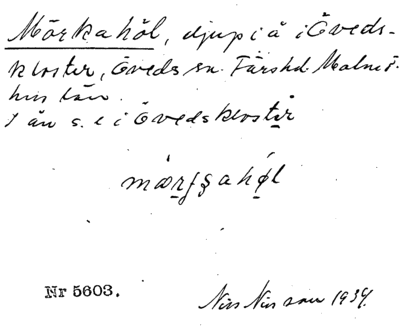 Mörkahöl, djup i å i Öveds-
kloster, Öveds sn. Färshd. Malmö-
hus län.
I ån s. e i Övedskloster
Nr 5603. Nils Nilsson 1934.